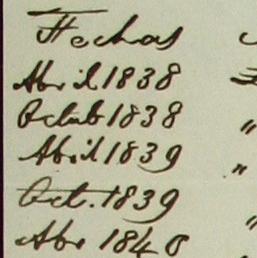 Fechas
Abril 1838
Octub 1838 "
Abril 1839 "
Oct. 1839
Abr 1840 "